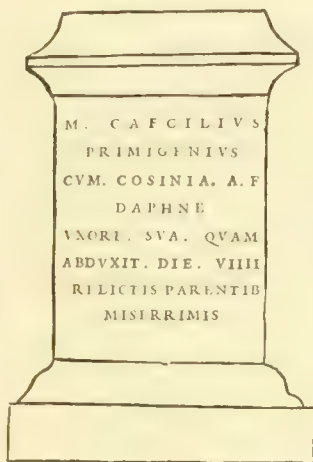 M. CAECILIVS
PRIMIGENIVS
CVM. COSINIA. A. F
DAPHNE
VXORI. SVA. QVAM
ABDVXIT. DIE. VIIII
RILICTIS PARENTIB
MISERRIMIS